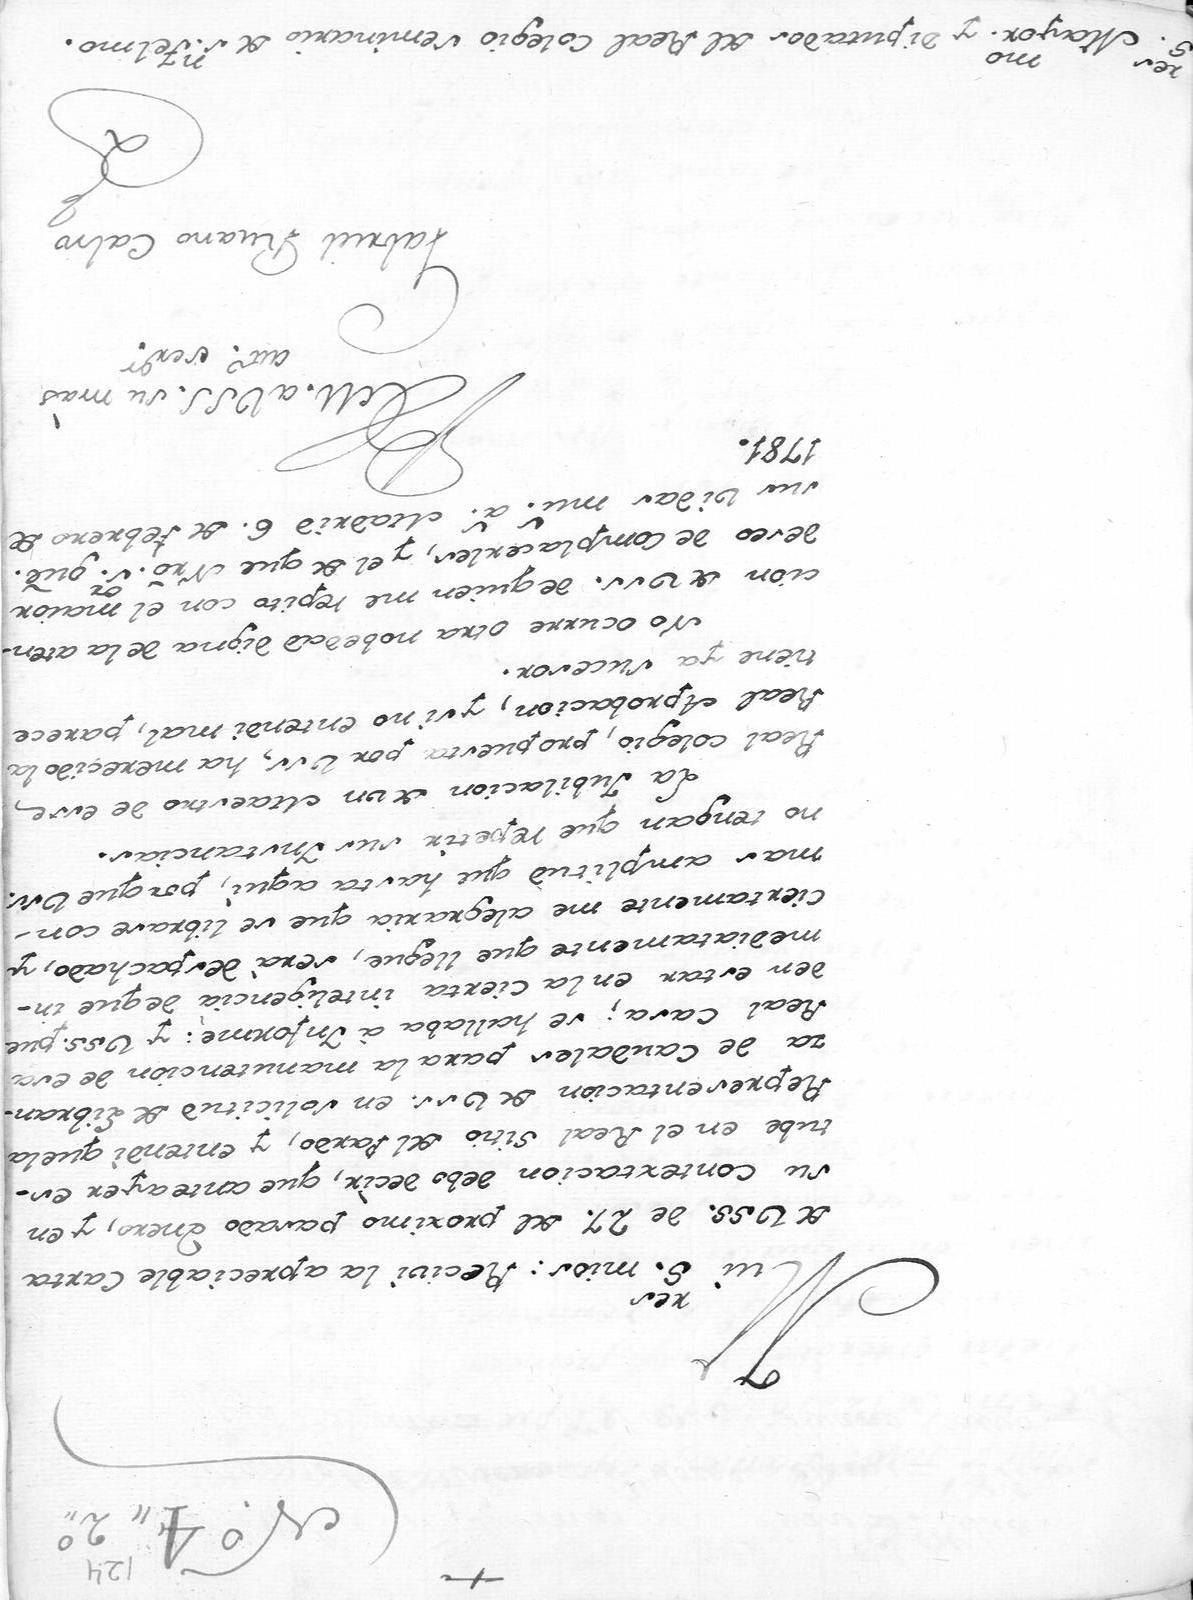 +
124
N.º 4,, 2º,,
Mui S.res mios: Recivi la apreciable Carta
de VSS. de 27. del proximo pasado Enero, y en
su contextacion debo decir, que anteayer es-
tube en el Real Sitio del Pardo, y entendi que la
Representacion de Vss. en solicitud de Libran-
za de Caudales para la manutencion de esa
Real Casa; se hallaba à Informe; y VSS. pue
den estar en la cierta inteligencia de que in-
mediatamente que llegue, serà despachado, y
ciertamente me alegraria que se librase con-
mas amplitud que hasta aqui, porque Vss.
no tengan que repetir sus Instancias.
La Jubilacion de un Maestro de ese
Real colegio, propuesta por Vss, ha merecido la
Real Aprobacion, y si no entendi mal, parece
tiene ya sucesor.
No ocurre otra nobedad digna de la aten-
cion de Vss. de quien me repito con el maior
deseo de complacerles, y el de que Nro. S.or gue.
sus vidas m.s a.s Madrid 6. de febrero de
1781.
B L M. a VSS. su mas
at.º serv.r
Gabriel Ruano Calvo
S.res Mayor.mo y Diputados del Real Colegio Seminario de S.n Telmo.